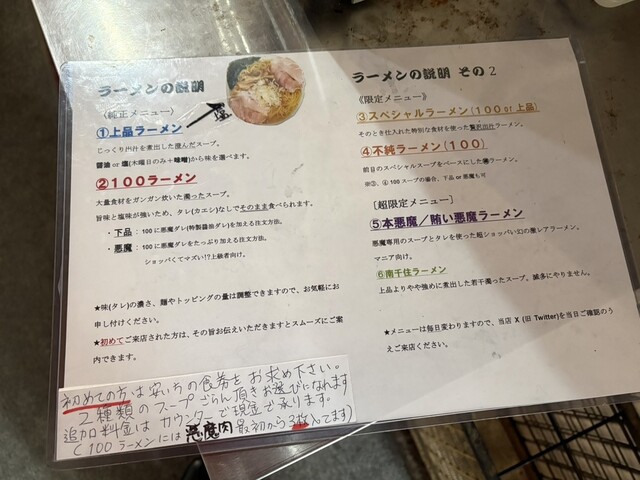 ラーメンの説明
〈純正メニュー〉
塩
①上品ラーメン
じっくり出汁を煮出した澄んだスープ。
醤油 or 塩(木曜日のみ+味噌)から味を選べます。
②100ラーメン
大量食材をガンガン炊いた濁ったスープ。
旨味と塩味が強いため、タレ(カエシ)なしでそのまま食べられます。
・下品:100に悪魔ダレ(特製醤油ダレ)を加える注文方法。
・悪魔:100に悪魔ダレをたっぷり加える注文方法。
ショッパくてマズい!?上級者向け。
★味(タレ)の濃さ、麺やトッピングの量は調整できますので、お気軽にお
申し付けください。
★初めてご来店された方は、その旨お伝えいただきますとスムーズにご案
内できます。
初めての方は安いちの食券をお求め下さい。
2種類のスープごらん頂きお選びになれます
追加料金はカウンターで現金で承ります。
(100ラーメンには悪魔肉最初から3枚入ってます)
ラーメンの説明 その2
《限定メニュー》
③スペシャルラーメン(100 or 上品)
そのとき仕入れた特別な食材を使った贅沢出汁ラーメン。
④不純ラーメン(100)
前日のスペシャルスープをベースにした㊙ラーメン。
※③、④100スープの場合、下品 or 悪魔も可
〔超限定メニュー〕
⑤本悪魔/賄い悪魔ラーメン
悪魔専用のスープとタレを使った超ショッパい幻の激レアラーメン。
マニア向け。
⑥南千住ラーメン
上品よりやや強めに煮出した若干濁ったスープ。滅多にやりません。
★メニューは毎日変わりますので、当店 X (旧 Twitter)を当日ご確認のう
えご来店ください。